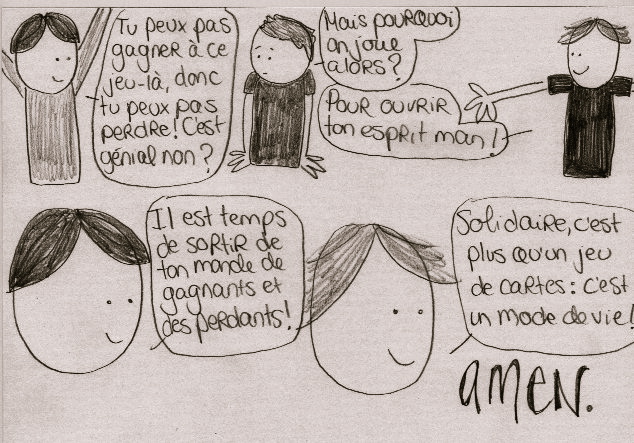 Tu peux pas
gagner à ce
jeu-là, donc
tu peux pas
perdre! C'est
génial non?
Mais pourquoi
on joue
alors?
Pour ouvrir
ton esprit man!
Il est temps
de sortir de
ton monde de
gagnants et
des perdants!
Solidaire, c'est
plus qu'un jeu
de cartes: c'est
un mode de vie!
amen.